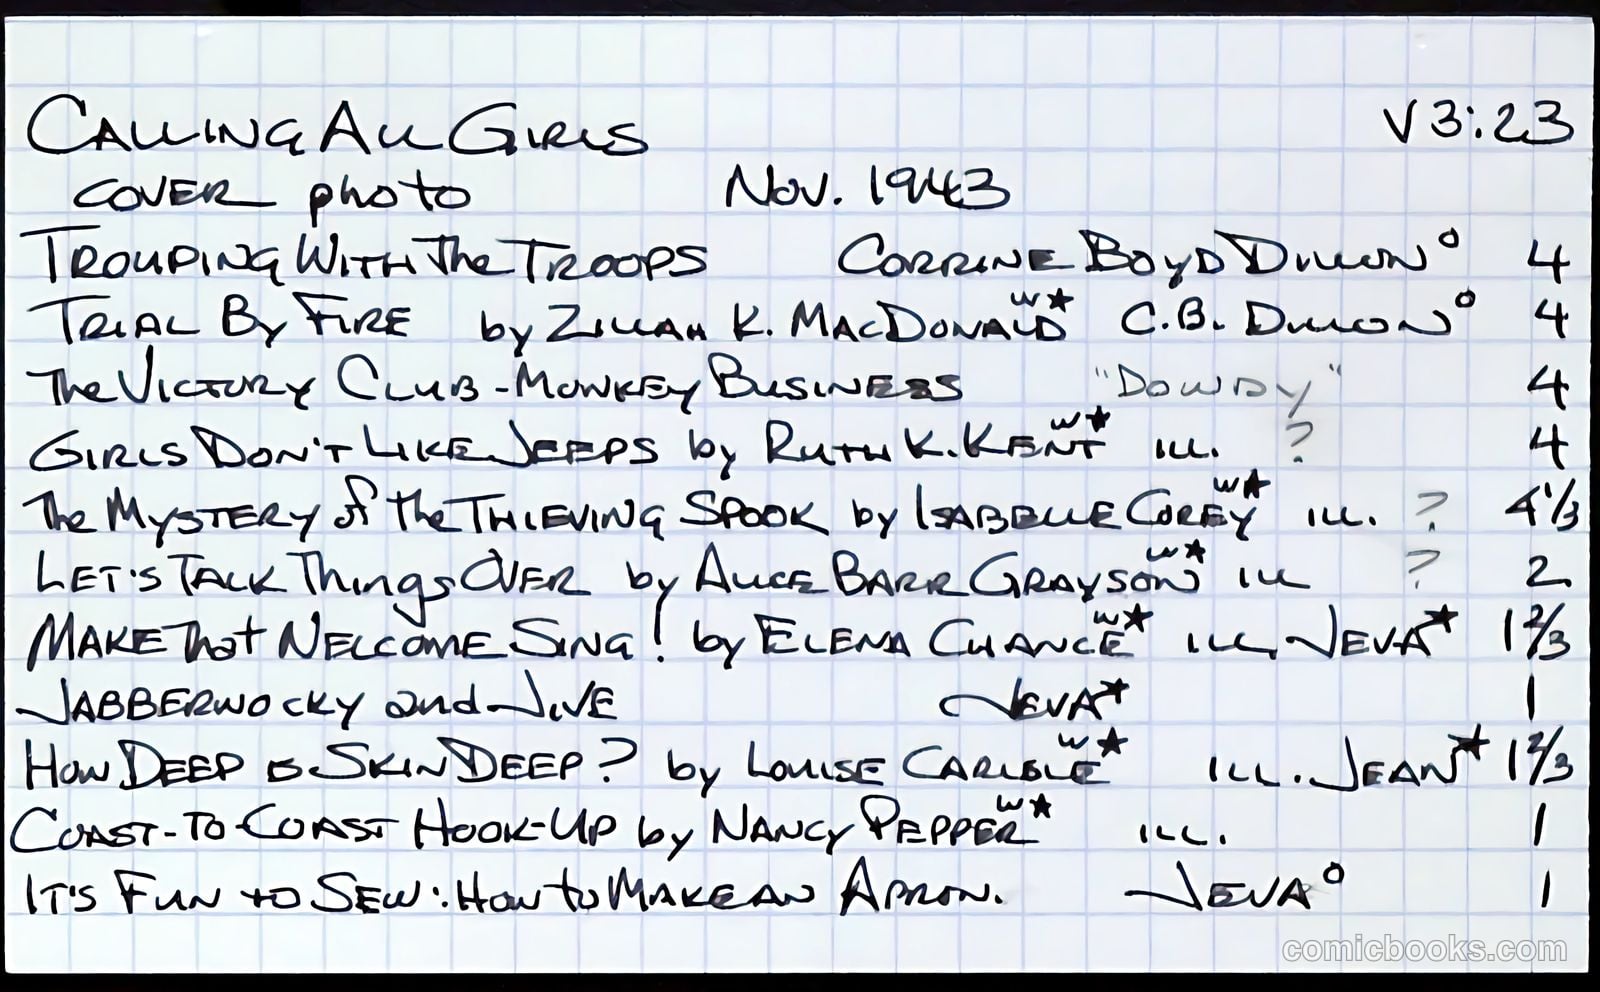 CALLING ALL GIRLS V3:23
COVER photo Nov. 1943
TROUPING WITH The TROOPS CORRINE BOYD DILLON° 4
TRIAL BY FIRE by ZILLAH K. MACDONALD W★ C.B. DILLON° 4
The VICTORY CLUB - MONKEY BUSINESS "DOWDY" 4
GIRLS DON'T LIKE JEEPS by RUTH K. KENT W★ ILL. ? 4
The MYSTERY of the THIEVING SPOOK by ISABELLE COREY W★ ILL. ? 4 1/3
LET'S TALK Things OVER by ALICE BARR GRAYSON W★ ILL ? 2
MAKE That WELCOME SING! by ELENA CHANCE W★ ILL. JEVA★ 1 2/3
JABBERWOCKY and JIVE JEVA★ 1
HOW DEEP IS SKIN DEEP? by LOUISE CARLISLE W★ ILL. JEAN★ 1 2/3
COAST-TO-COAST HOOK-UP by NANCY PEPPER W★ ILL. 1
IT'S FUN to SEW: HOW to MAKE AN APRON. JEVA° 1
comicbooks.com